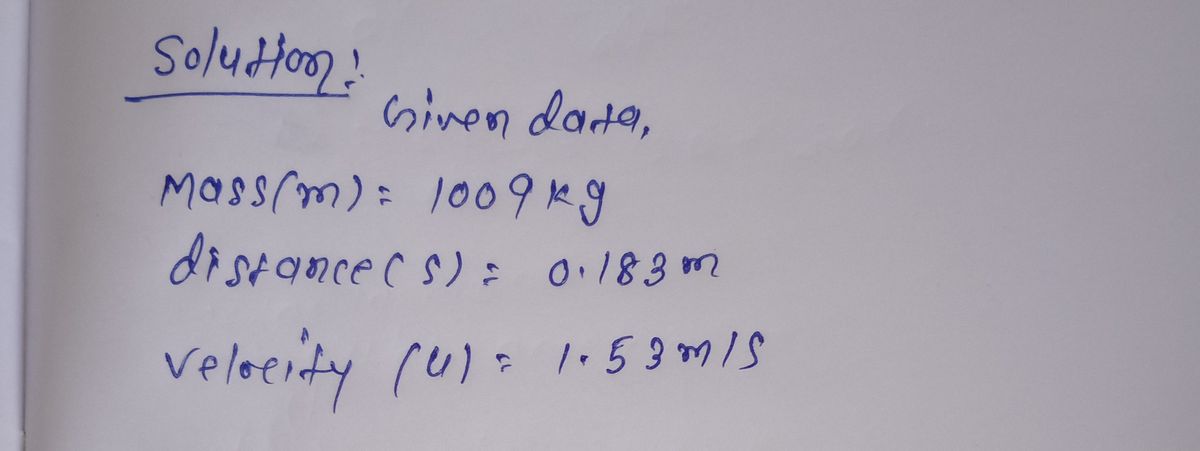 Solution:
Given data,
Mass(m) = 1009 kg
distance(s) = 0.183 m
velocity (u) = 1.53 m/s